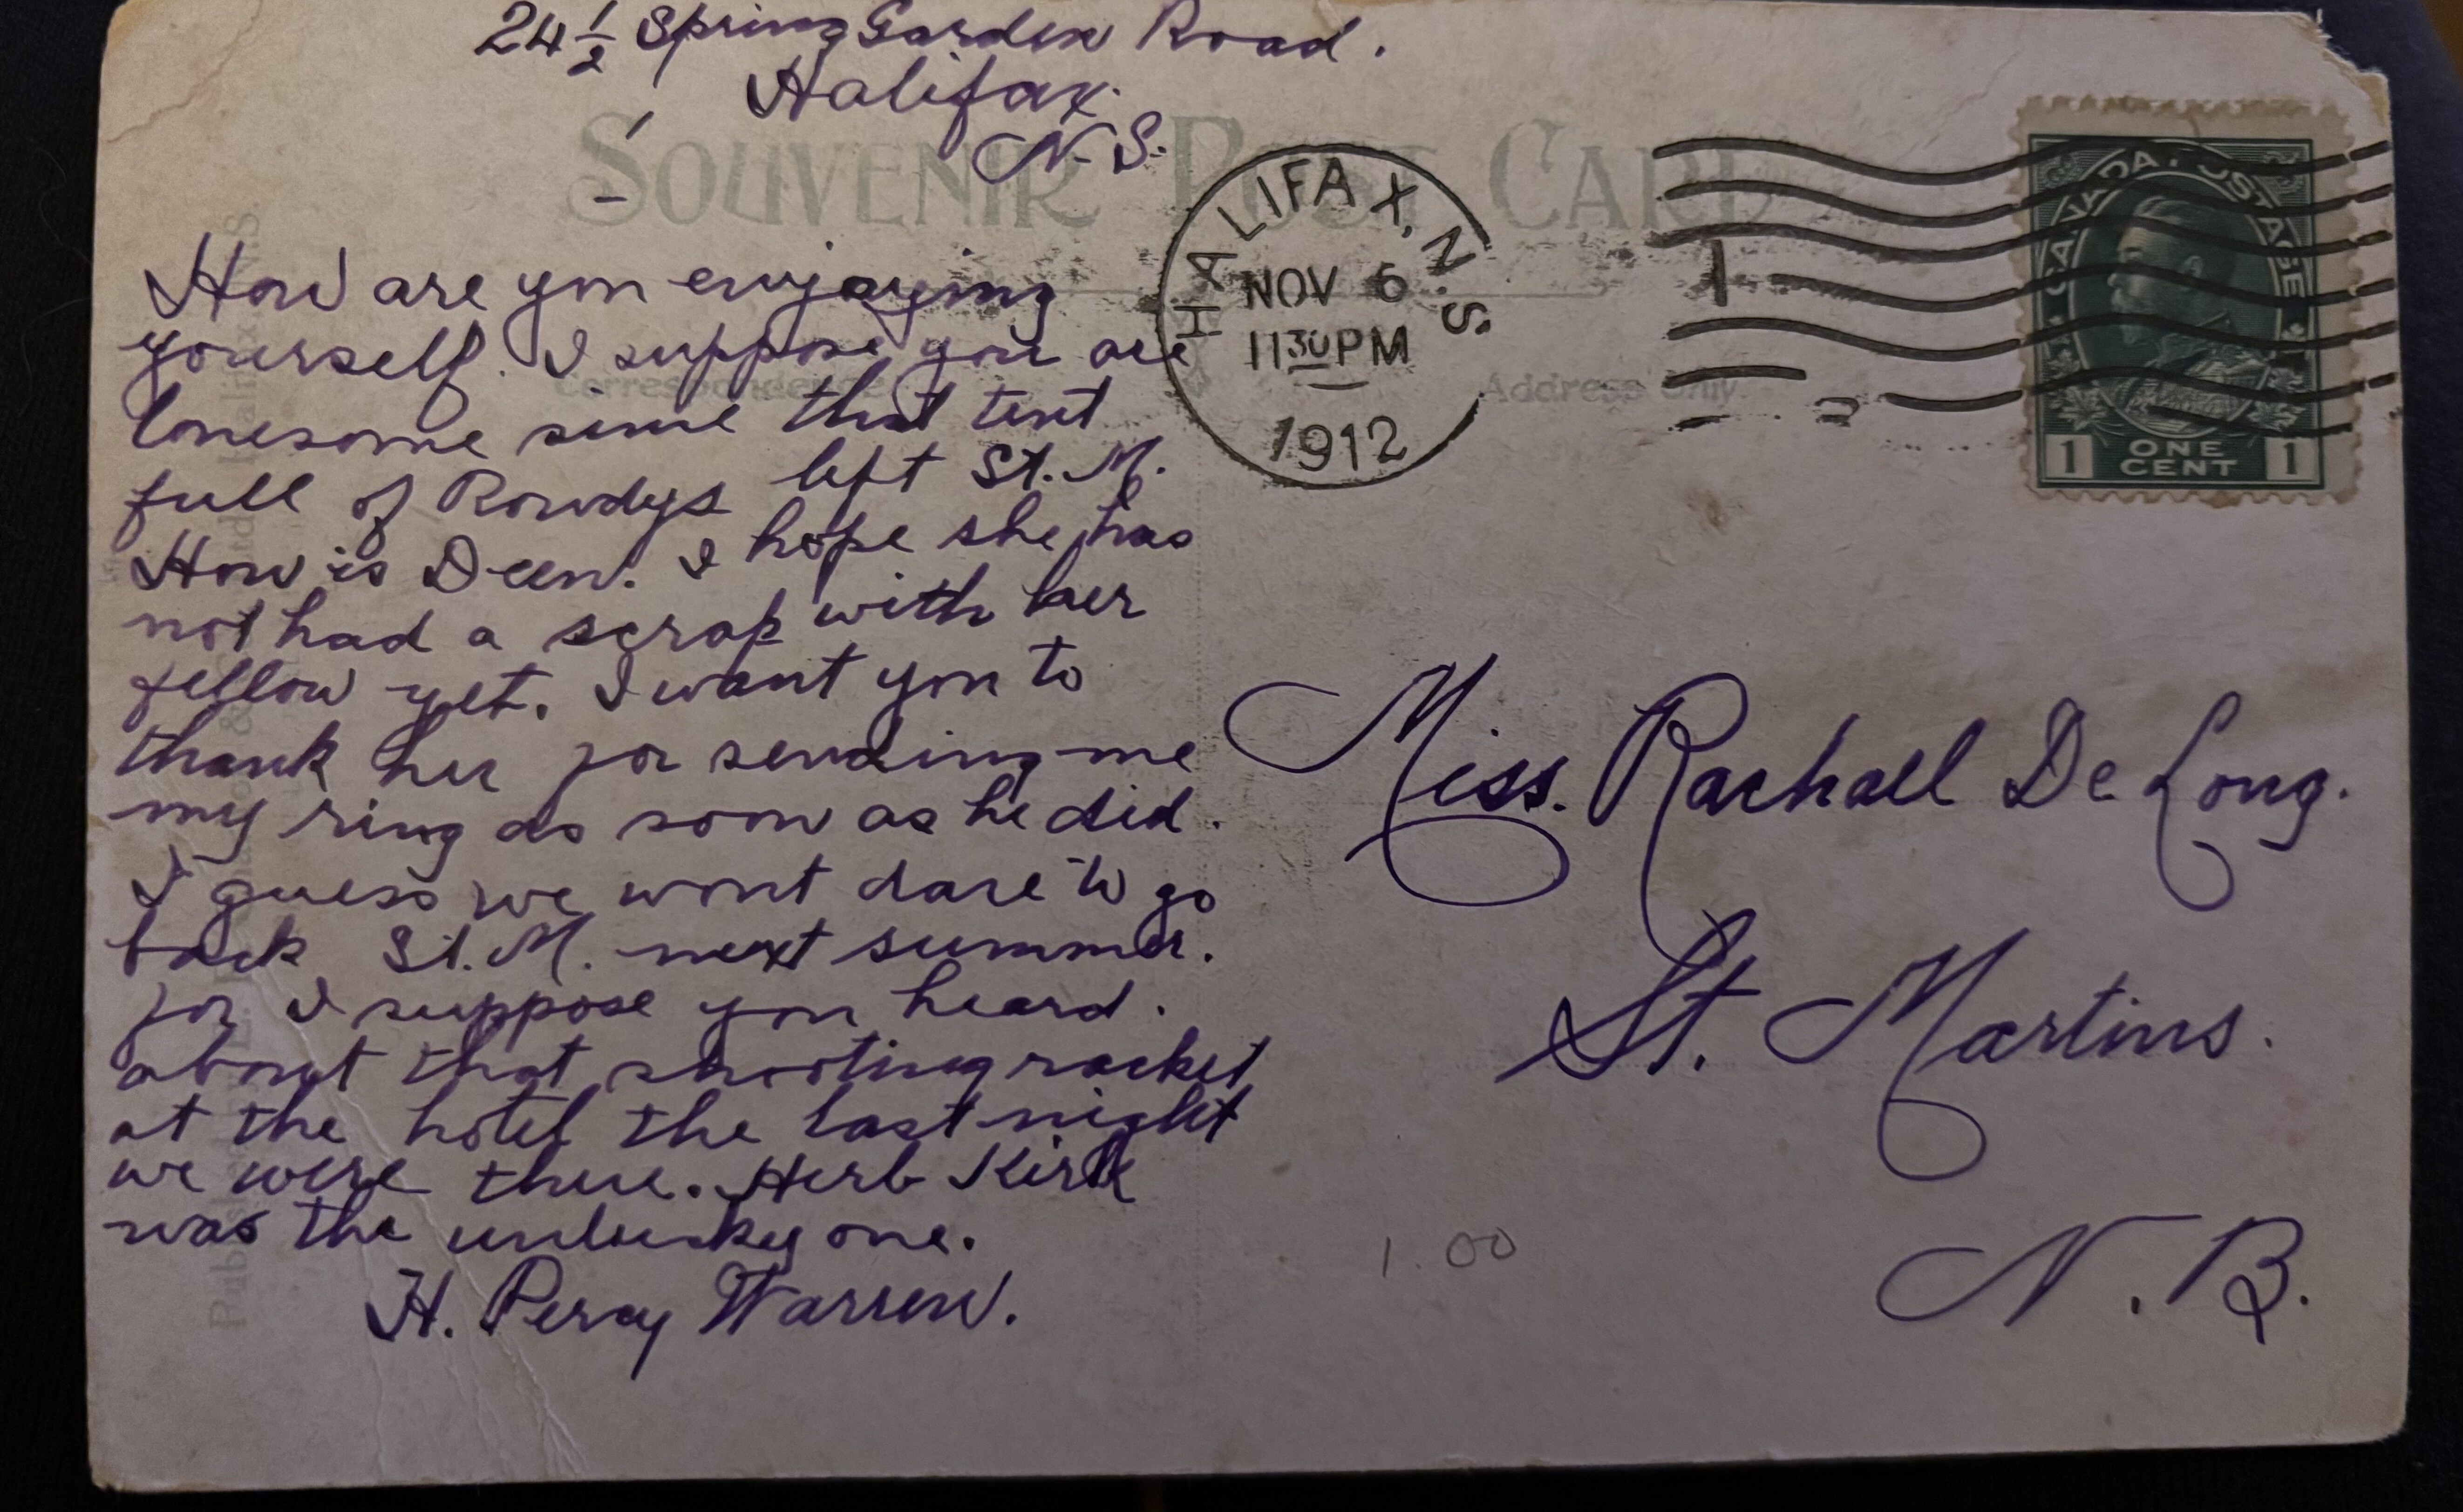 24 1/2 Spring Garden Road.
Halifax.
N. S.
SOUVENIR POST CARD
HALIFAX, N.S.
NOV 6
11 30 PM
1912
CANADA POSTAGE
1 ONE CENT 1
Correspondence
Address Only
How are you enjoying
yourself. I suppose you are
lonesome since that tent
full of Rowdys left St. M.
How is Deen. I hope she has
not had a scrap with her
fellow yet. I want you to
thank her for sending me
my ring as soon as he did.
I guess we wont dare to go
back St. M. next summer.
for I suppose you heard.
about that shooting racket
at the hotel the last night
we were there. Herb Kirk
was the unlucky one.
H. Percy Warren.
Miss. Rachael De Long.
St. Martins.
N. B.
1.00